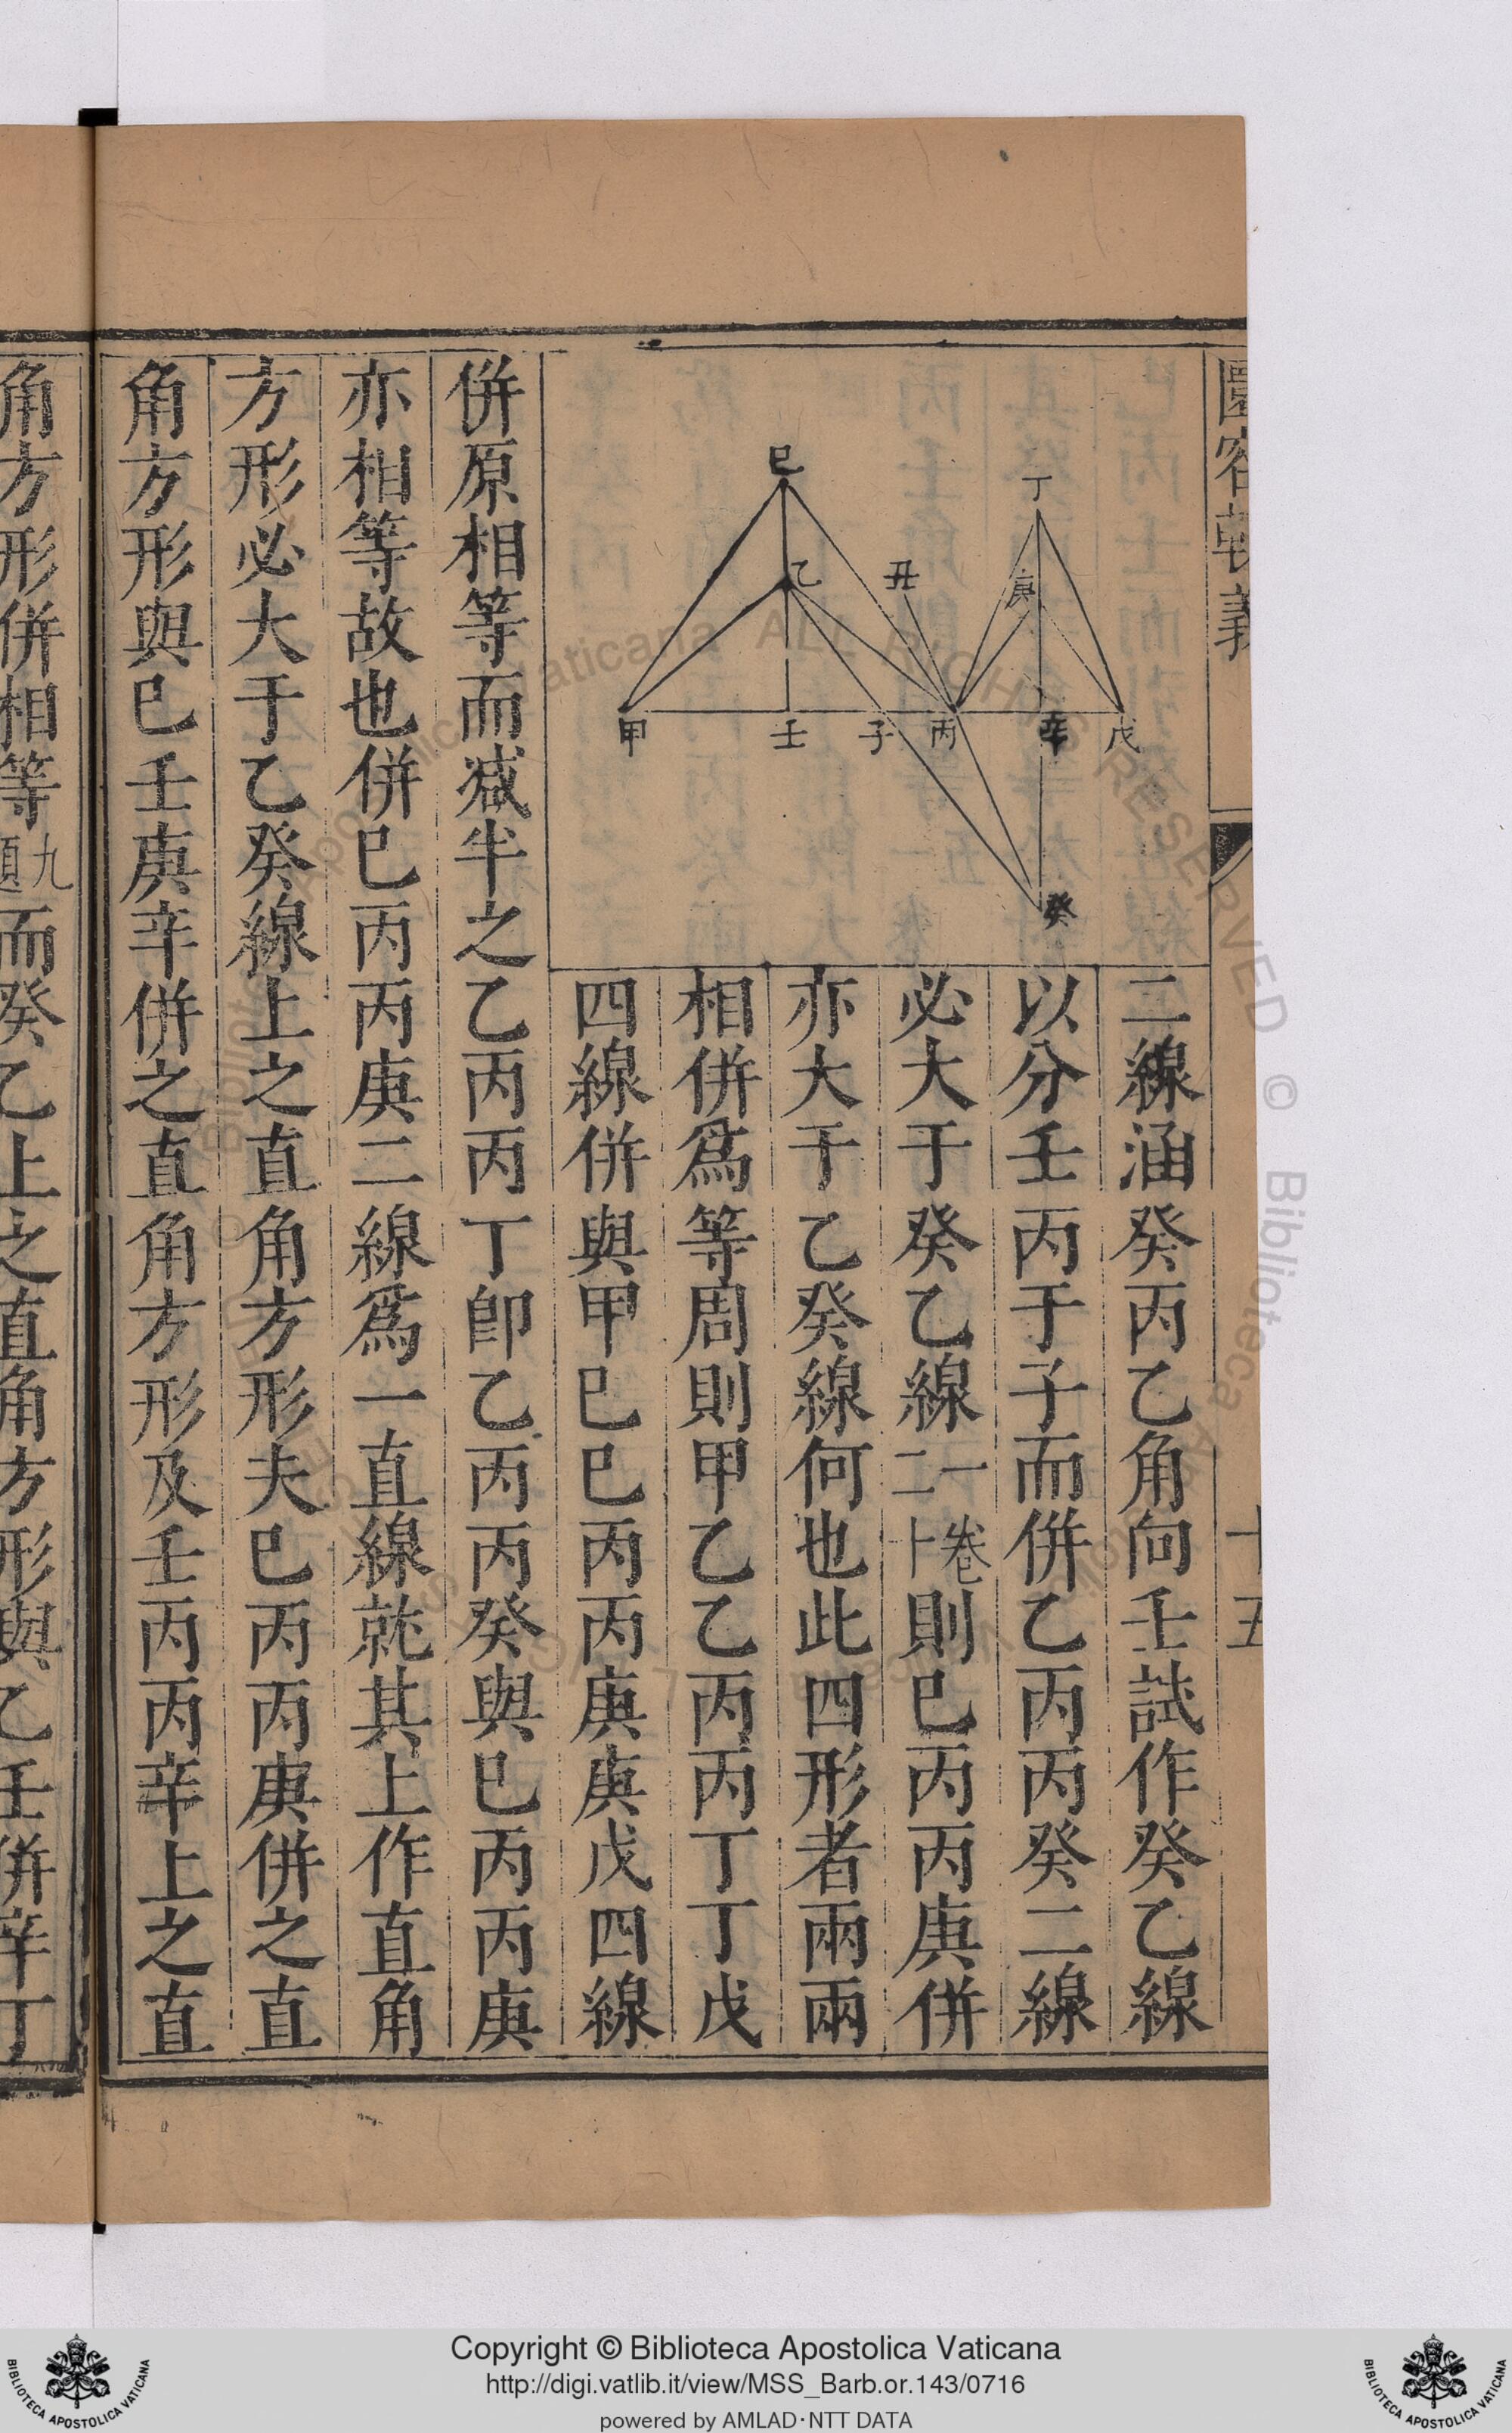 圜容較義
十五
巳
乙
丑
丁
庚
甲
壬
子
丙
辛
戊
癸
二線涵癸丙乙角向壬試作癸乙線
以分壬丙于子而併乙丙丙癸二線
必大于癸乙線一卷二十則巳丙丙庚併
亦大于乙癸線何也此四形者兩兩
相併爲等周則甲乙乙丙丙丁丁戊
四線併與甲巳巳丙丙庚庚戊四線
併原相等而减半之乙丙丙丁卽乙丙丙癸與巳丙丙庚
亦相等故也併巳丙丙庚二線爲一直線就其上作直角
方形必大于乙癸線上之直角方形夫巳丙丙庚併之直
角方形與巳壬庚辛併之直角方形及壬丙丙辛上之直
角方形併相等九題而癸乙上之直角方形與乙壬併辛丁
Copyright © Biblioteca Apostolica Vaticana
http://digi.vatlib.it/view/MSS_Barb.or.143/0716
powered by AMLAD·NTT DATA
BIBLIOTECA APOSTOLICA VATICANA
BIBLIOTECA APOSTOLICA VATICANA